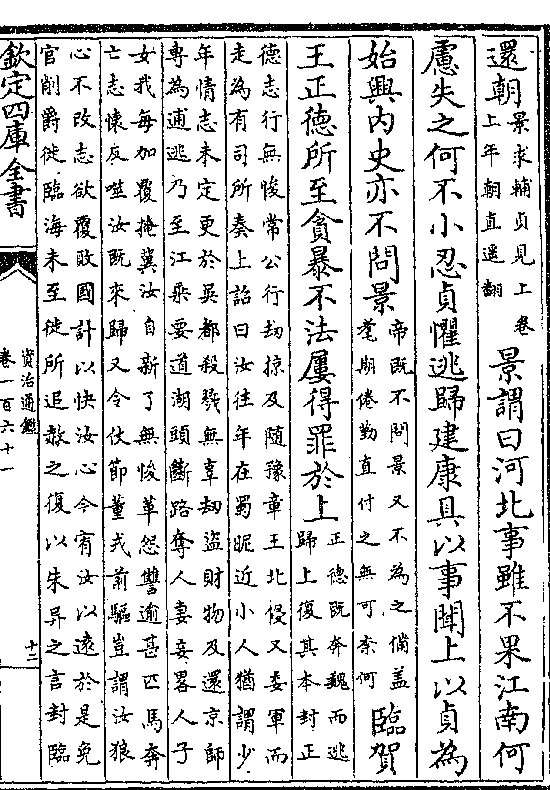 還朝景求輔貞見上卷上年朝直遥翻景謂曰河北事雖不果江南何
慮失之何不小忍貞懼逃歸建康具以事聞上以貞為
始興内史亦不問景帝既不問景又不為之備盖耄期倦勤直付之無可柰何臨賀
王正德所至貪暴不法屢得罪於上正德既奔魏而逃歸上復其本封正
德志行無悛常公行刼掠及隨豫章王北侵又委軍而
走為有司所奏上詔曰汝往年在蜀昵近小人猶謂少
年情志未定更於吳都殺戮無辜刼盜財物及還京師
專為逋逃乃至江乘要道湖頭斷路奪人妻妾畧人子
女我每加覆掩冀汝自新了無悛革怨讐逾甚匹馬奔
亡志懷反噬汝既來歸又令仗節董戎前驅豈謂汝狼
心不改志欲覆敗國計以快汝心今宥汝以遠於是免
官削爵徙臨海未至徙所追赦之復以朱异之言封臨
欽定四庫全書
資治通鑑
卷一百六十一
十二